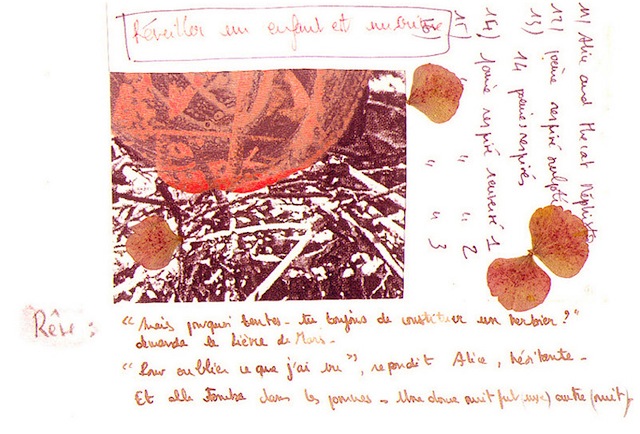 Réveiller un enfant est un crime
11/ Alice and the cat
12) poème respiré
13) 14 poèmes respirés
14) poème respiré renversé 1
15) " " " 2
" " 3
Rêve :
"Mais pourquoi tentes-tu toujours de constituer un herbier ?"
demanda le lièvre de Mars.
"Pour oublier ce que j'ai vu", répondit Alice, hésitante.
Et elle tomba dans les pommes. Une douce nuit autre (nuit